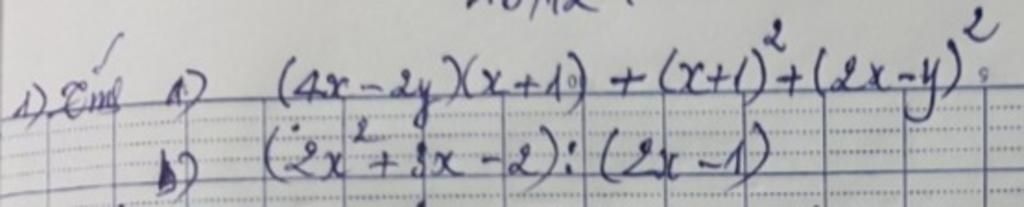 1) Tính a) (4x - 2y)(x + 1) + (x+1)² + (2x - y)².
b) (2x² + 3x - 2) : (2x - 1)